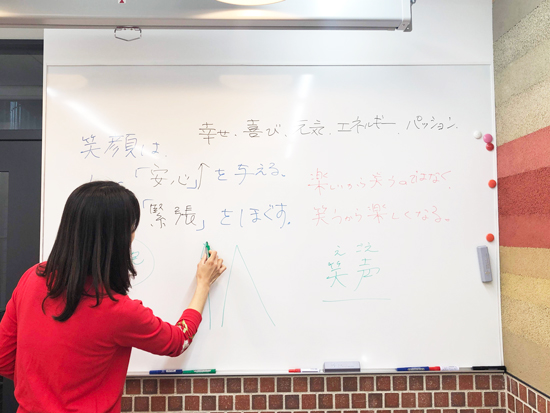 幸せ、喜び、元気、エネルギー、パッション、
笑顔は、
「安心」↑を与える。
「緊張」をほぐす。
楽しいから笑うのではなく
笑うから楽しくなる。
えごえ
笑声